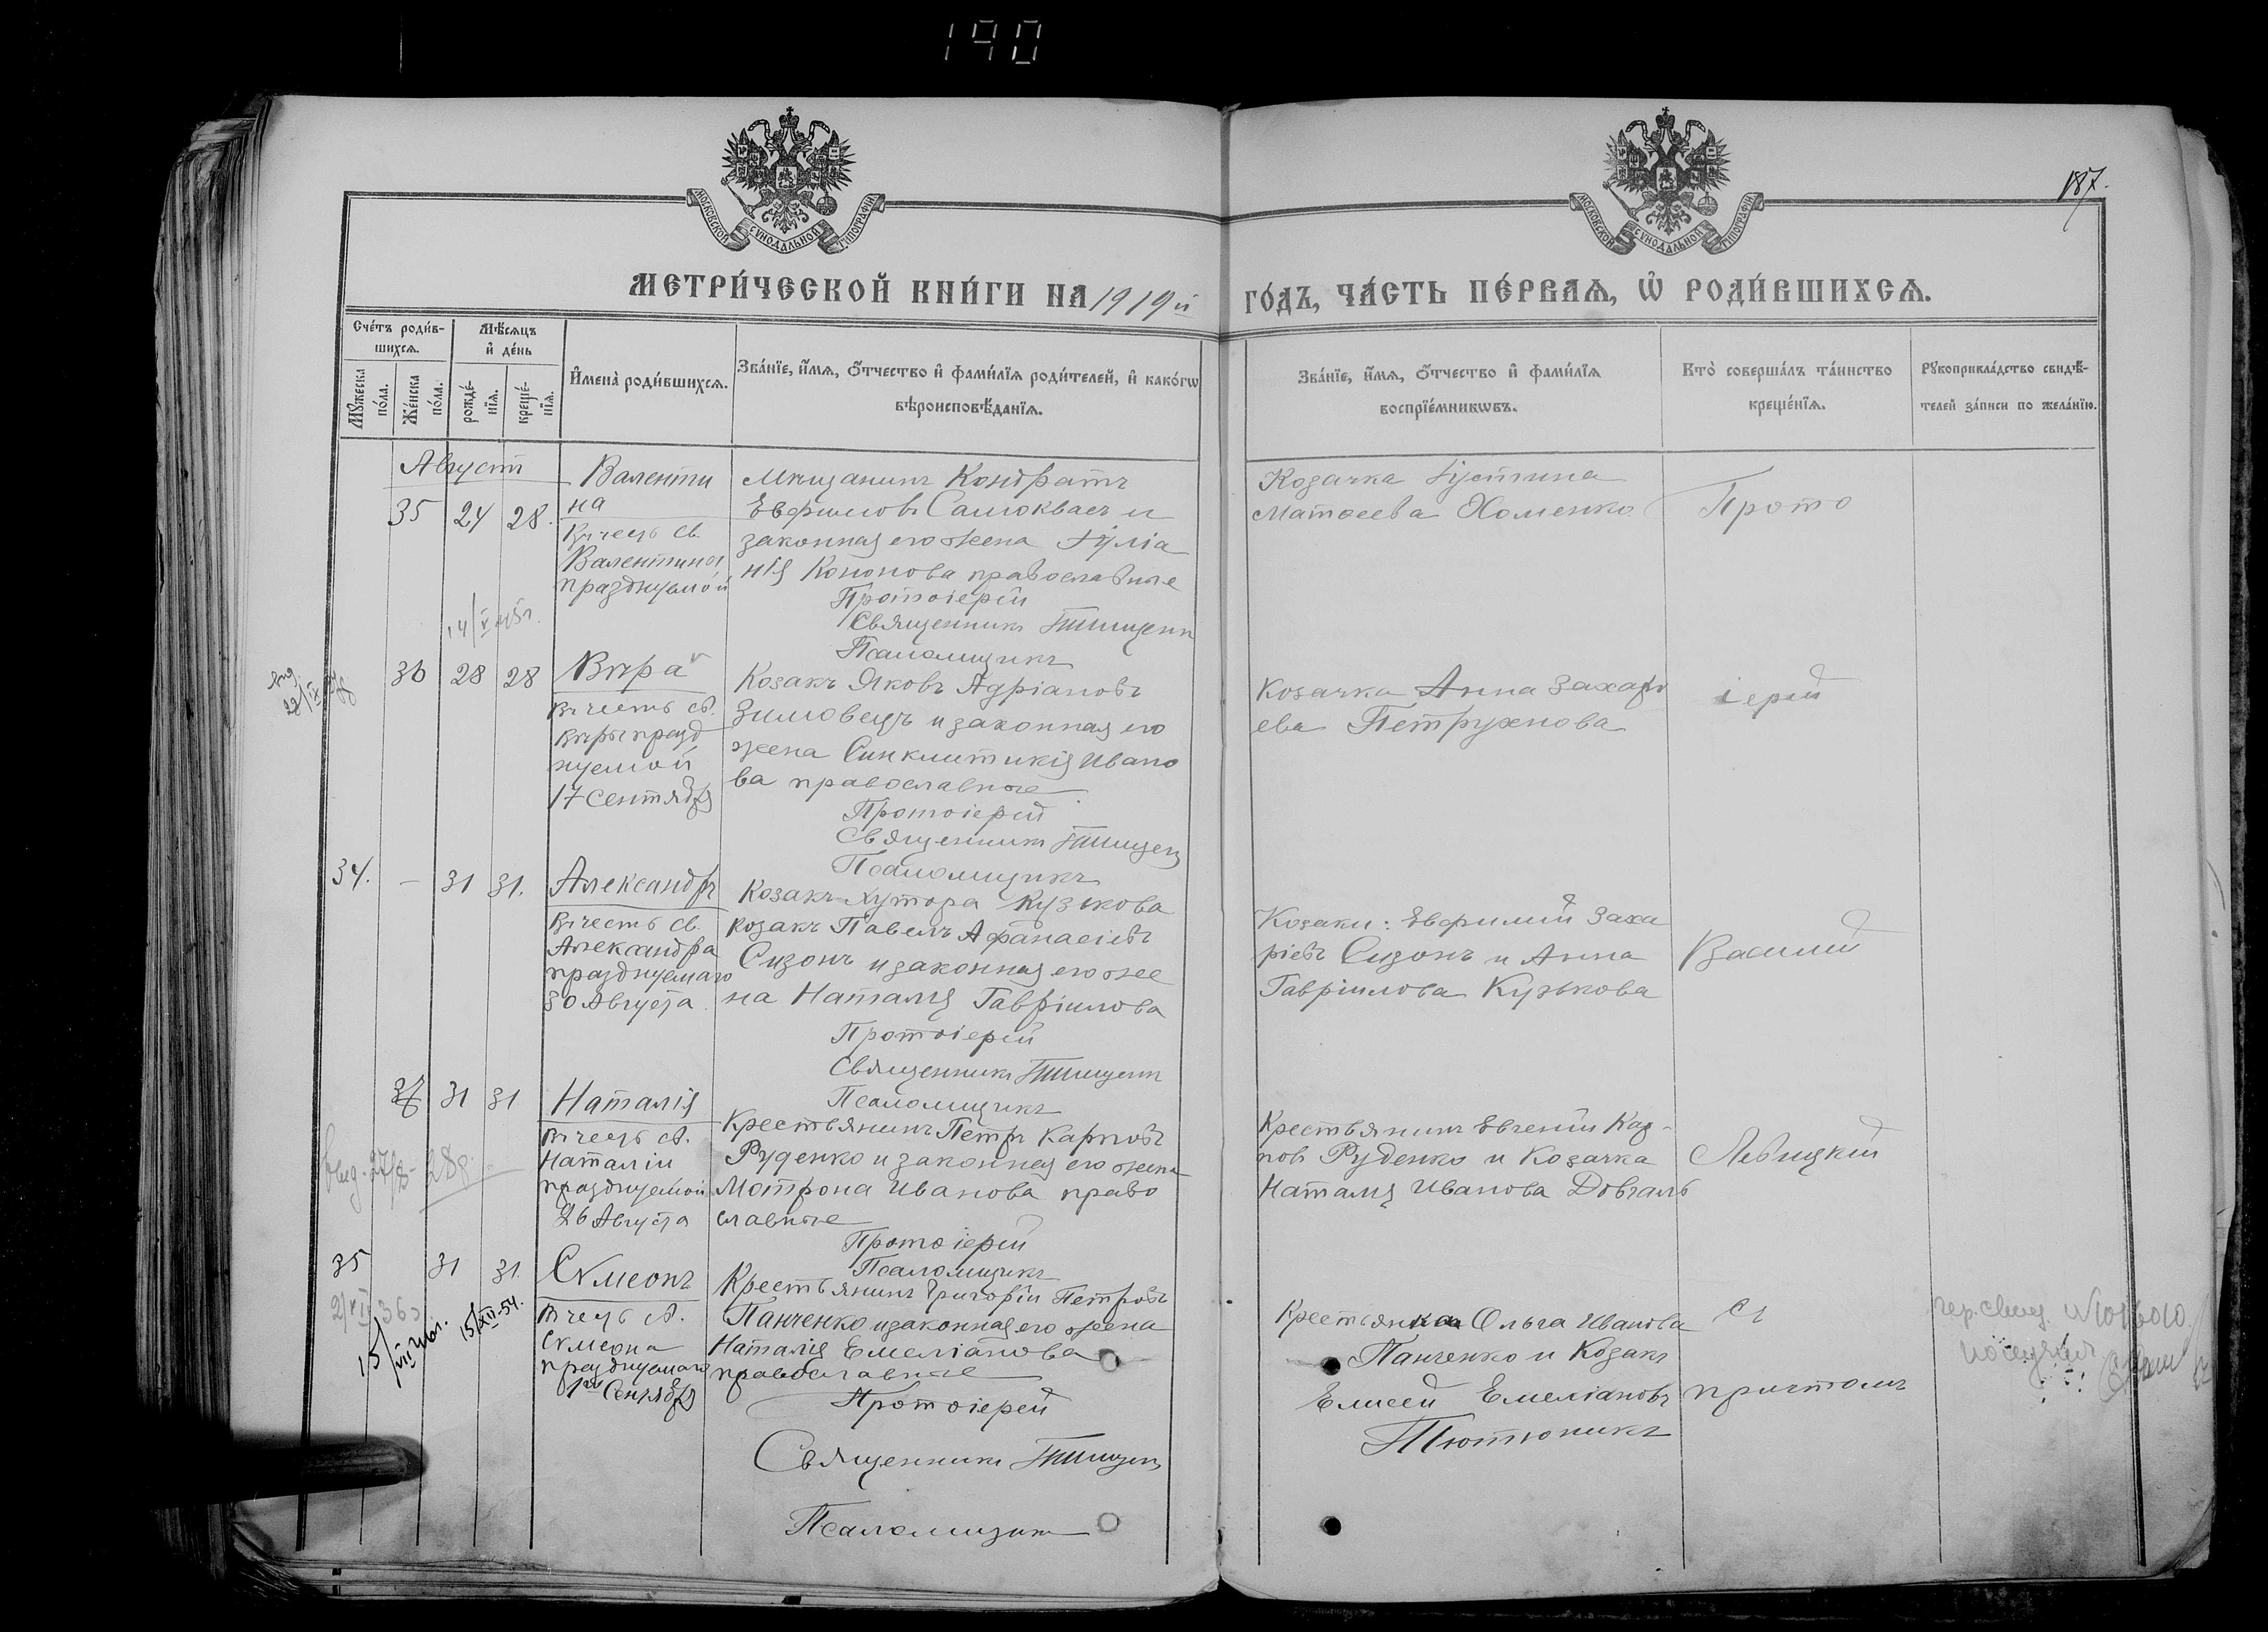 190
МОСКОВСКОЙ СѴНОДАЛЬНОЙ ТИПОГРАФІИ
МОСКОВСКОЙ СѴНОДАЛЬНОЙ ТИПОГРАФІИ
187.
МЕТРИ́ЧЕСКОЙ КНИ́ГИ НА 1919й ГО́ДЪ, ЧА́СТЬ ПЕ́РВАѦ, Ѡ҆ РОДИ́ВШИХСѦ.
Сче́тъ роди́в-
шихсѧ.
Мꙋ́жеска по́ла.
Же́нска по́ла.
Мѣ́сѧцъ
и҆ де́нь
рожде́-нїѧ.
креще́-нїѧ.
И҆мена̀ роди́вшихсѧ.
Зва́нїе, и҆́мѧ, ѻ҆́тчество и҆ фами́лїѧ роди́телей, и҆ како́гѡ
вѣроисповѣ́данїѧ.
Зва́нїе, и҆́мѧ, ѻ҆́тчество и҆ фами́лїѧ
воспрїе́мникѡвъ.
Кто̀ соверша́лъ та́инство
креще́нїѧ.
Рꙋкоприкла́дство свидѣ́-
телей за́писи по жела́нїю.
Августъ
35 24 28.
Валенти
на
Въ честь св.
Валентины
празднуемой
Мѣщанинъ Кондратъ
Евфимовъ Самокваcъ и
законная его жена Іуліа
нія Кононова православные
Протоіерей
Священникъ
Псаломщикъ
Козачка Іустина
Матѳеева Хоменко
Прото
36 28 28
Вѣра
Въ честь св.
Вѣры празд
нуемой
17 Сентября
Козакъ Яковъ Адріановъ
Зимовецъ и законная его
жена Синклитикія Ивано
ва православные
Протоіерей
Священникъ
Псаломщикъ
Козачка Анна Захарі
ева Петрухнова
іерей
34. – 31 31.
Александръ
Въ честь св.
Александра
празднуемаго
30 Августа.
Козакъ хутора Кузькова
козакъ Павелъ Афанасіевъ
Сизонъ и законная его же
на Наталія Гавріилова
Протоіерей
Священникъ
Псаломщикъ
Козаки: Евфимий Заха
ріевъ Сизонъ и Анна
Гавріилова Кузькова
Василий
37 31 31
Наталія
Въ честь св.
Наталіи
празднуемой
26 Августа
Крестьянинъ Петръ Карповъ
Руденко и законная его жена
Матрона Иванова право
славные
Протоіерей
Псаломщикъ
Крестьянинъ Евгений Кар-
повъ Руденко и Козачка
Наталія Иванова Довгаль
Левицкий
35 31 31.
Сѵмеонъ
Въ честь св.
Сѵмеона
празднуемаго
1го Сентября
15/XII-54.
Крестьянинъ Григорій Петровъ
Панченко и законная его жена
Наталія Емеліанова
православные
Протоіерей
Священникъ
Псаломщикъ
Крестьянка Ольга Иванова
Панченко и Козакъ
Елисей Емеліановъ
Тютюникъ
съ
притомъ